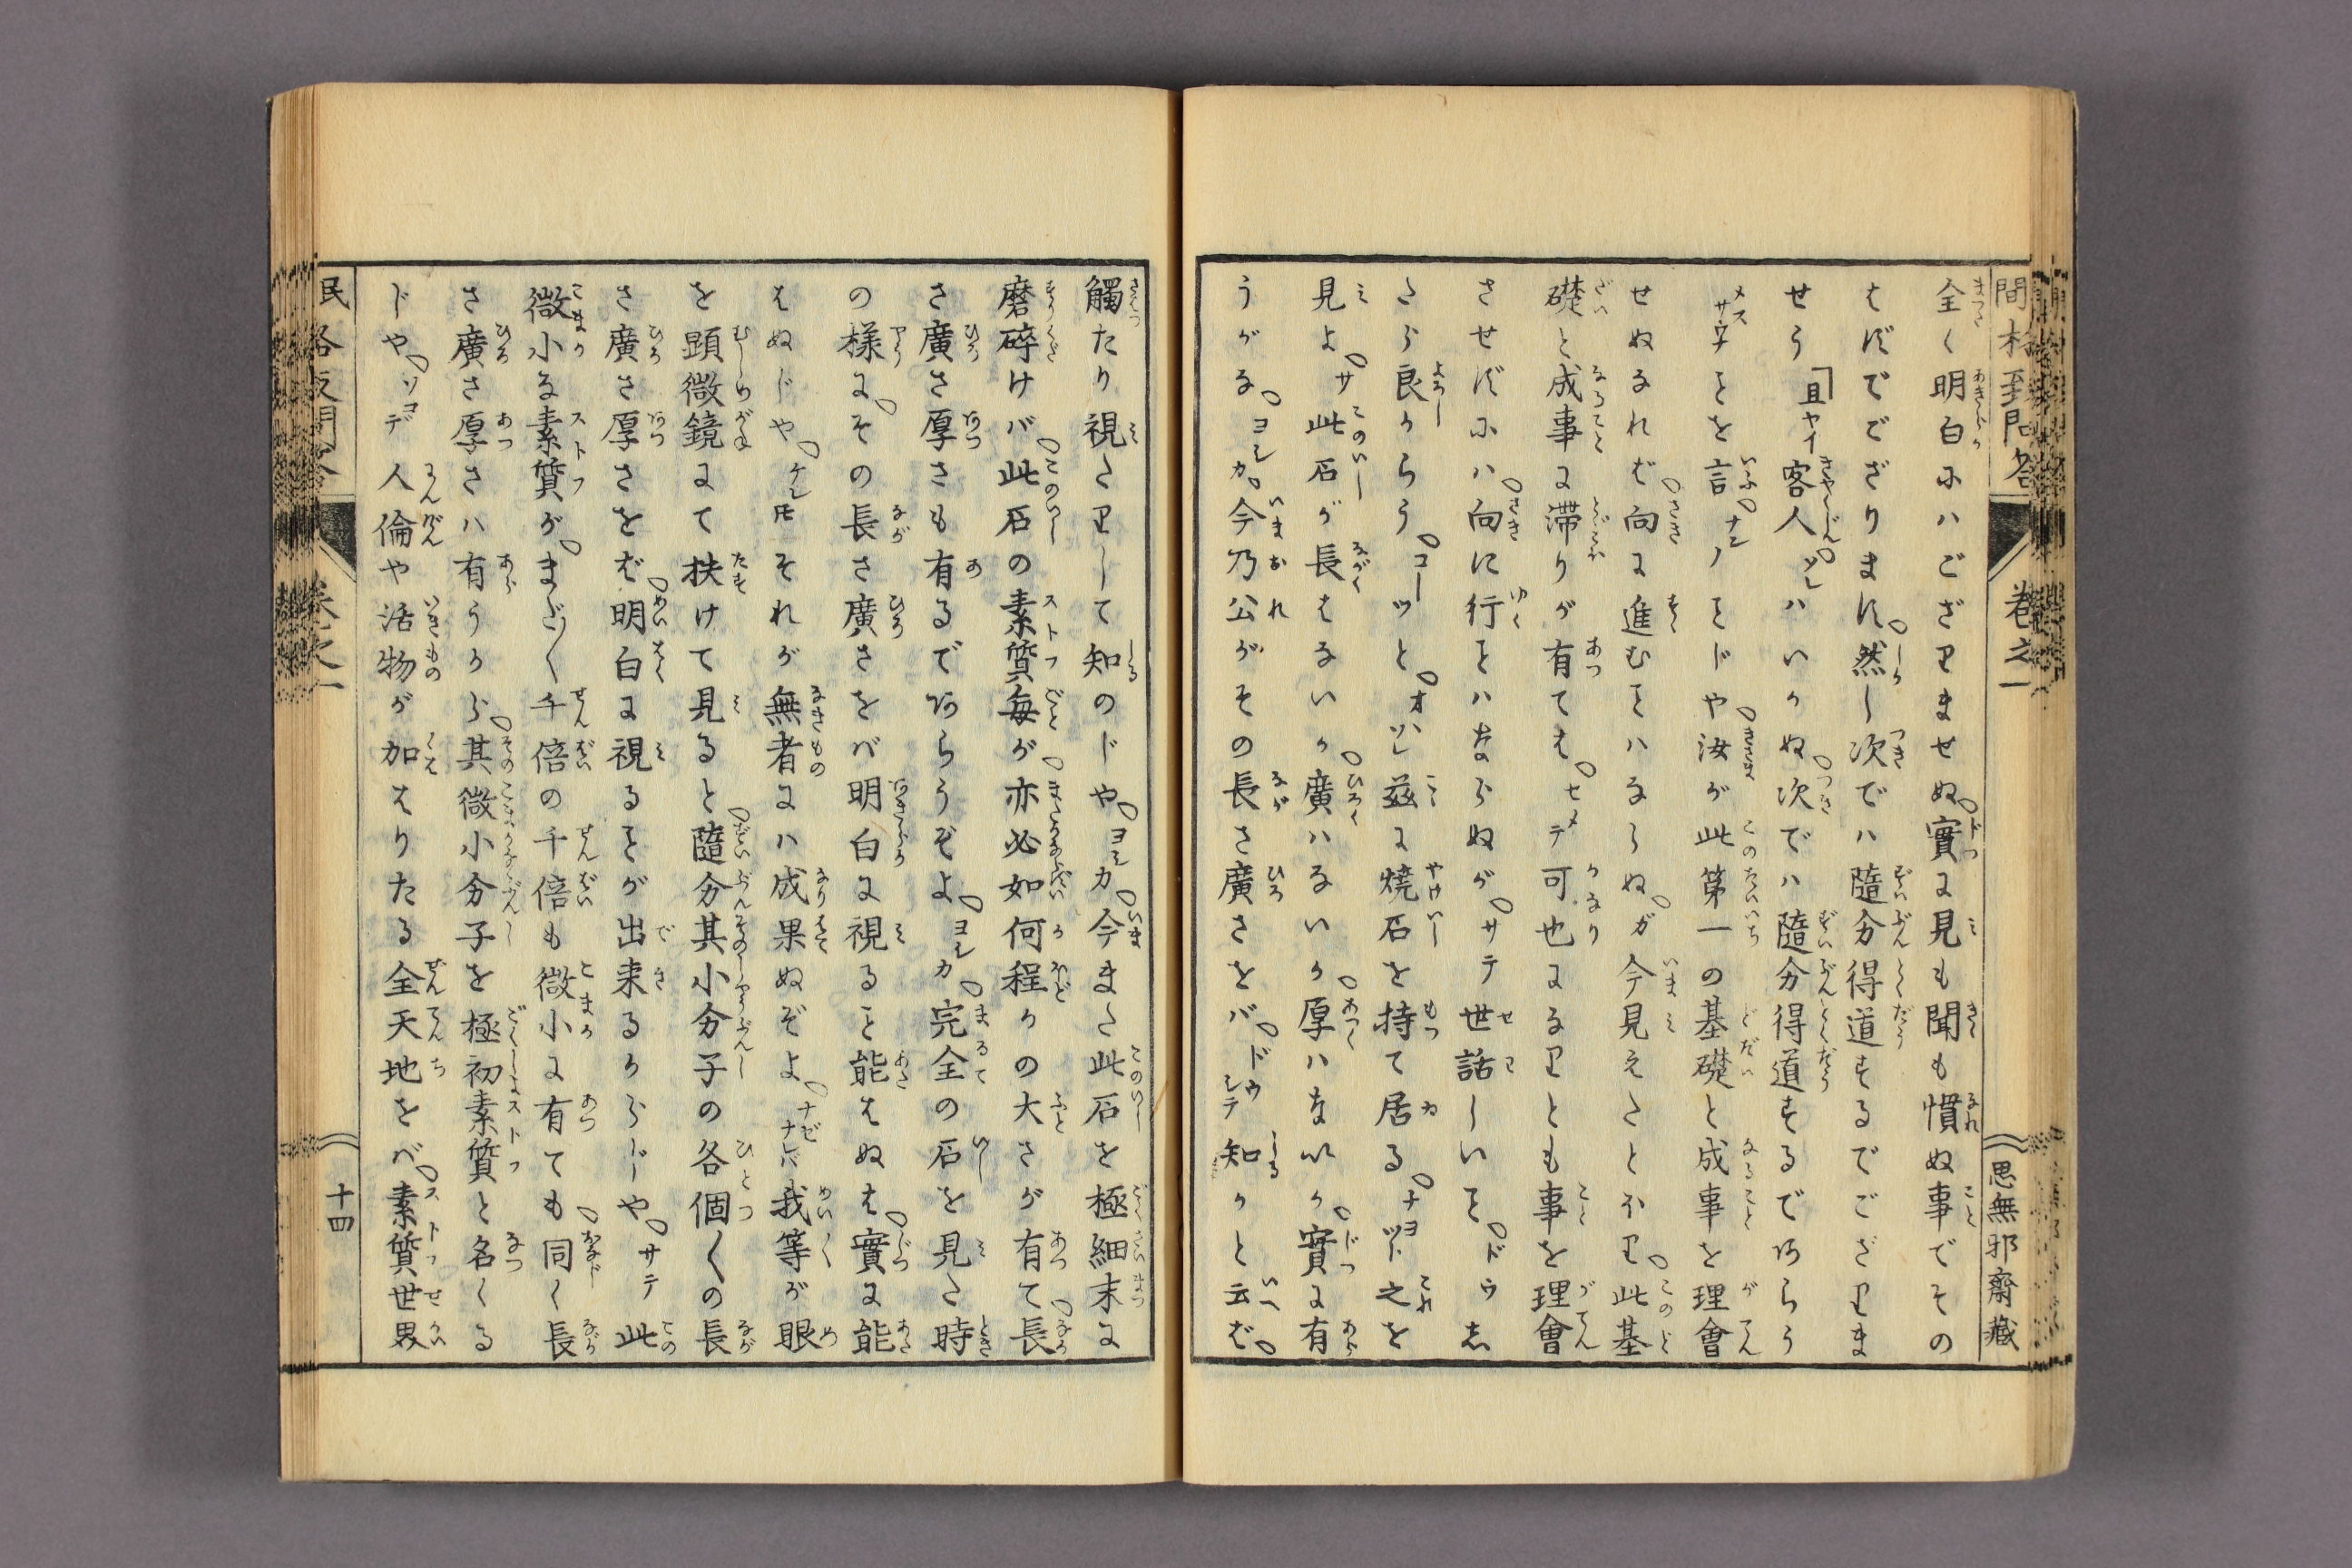 全く明白にハござりませぬ実に見も聞も慣ぬ事でその
はずでござります然し次でハ随分得道するでござりま
せう「且ヤイ客人ソレハいかぬ次でハ随分得道するであらう
メサルヿを言ナンノヿじや汝が此第一の基礎と成事を理會
せぬなれば向に進むヿハならぬガ今見えたとほり此基
礎と成事に滞りが有ては、セメテ可也になりとも事を理會
させずにハ向に行ヿハならぬがサテ世話しいヿドウし
たら良からうコーツとオヽソレ茲に焼石を持て居るナヨツト之を
見よサ此石が長はないか廣ハないか厚ハないか實に有
うがなヨシカ今乃公がその長さ廣さをバドウシテ知かと云ば
觸たり視たりして知のじやヨシカ今また此石を極細末に
磨碎けバ此石の素質毎が亦必如何程かの大さが有て長
さ廣さ厚さも有るであらうぞよヨシカ完全の石を見た時
の様にその長さ廣さをバ明白に視ること能はぬは實に能
はぬじやケレ𪜈それが無者にハ成果ぬぞよナゼナレバ我等が眼
を顕微鏡にて扶けて見ると隨分其小分子の各個〱の長
さ廣さ厚さをば明白に視るヿが出来るからじやサテ此
微小な素質がまだ〱千倍の千倍も微小に有ても同く長
さ廣さ厚さハ有うから其微小分子を極初素質と名くる
じやソコデ人倫や活物が加はりたる全天地をバ素質世界
巻之一
思無邪齋藏
十四